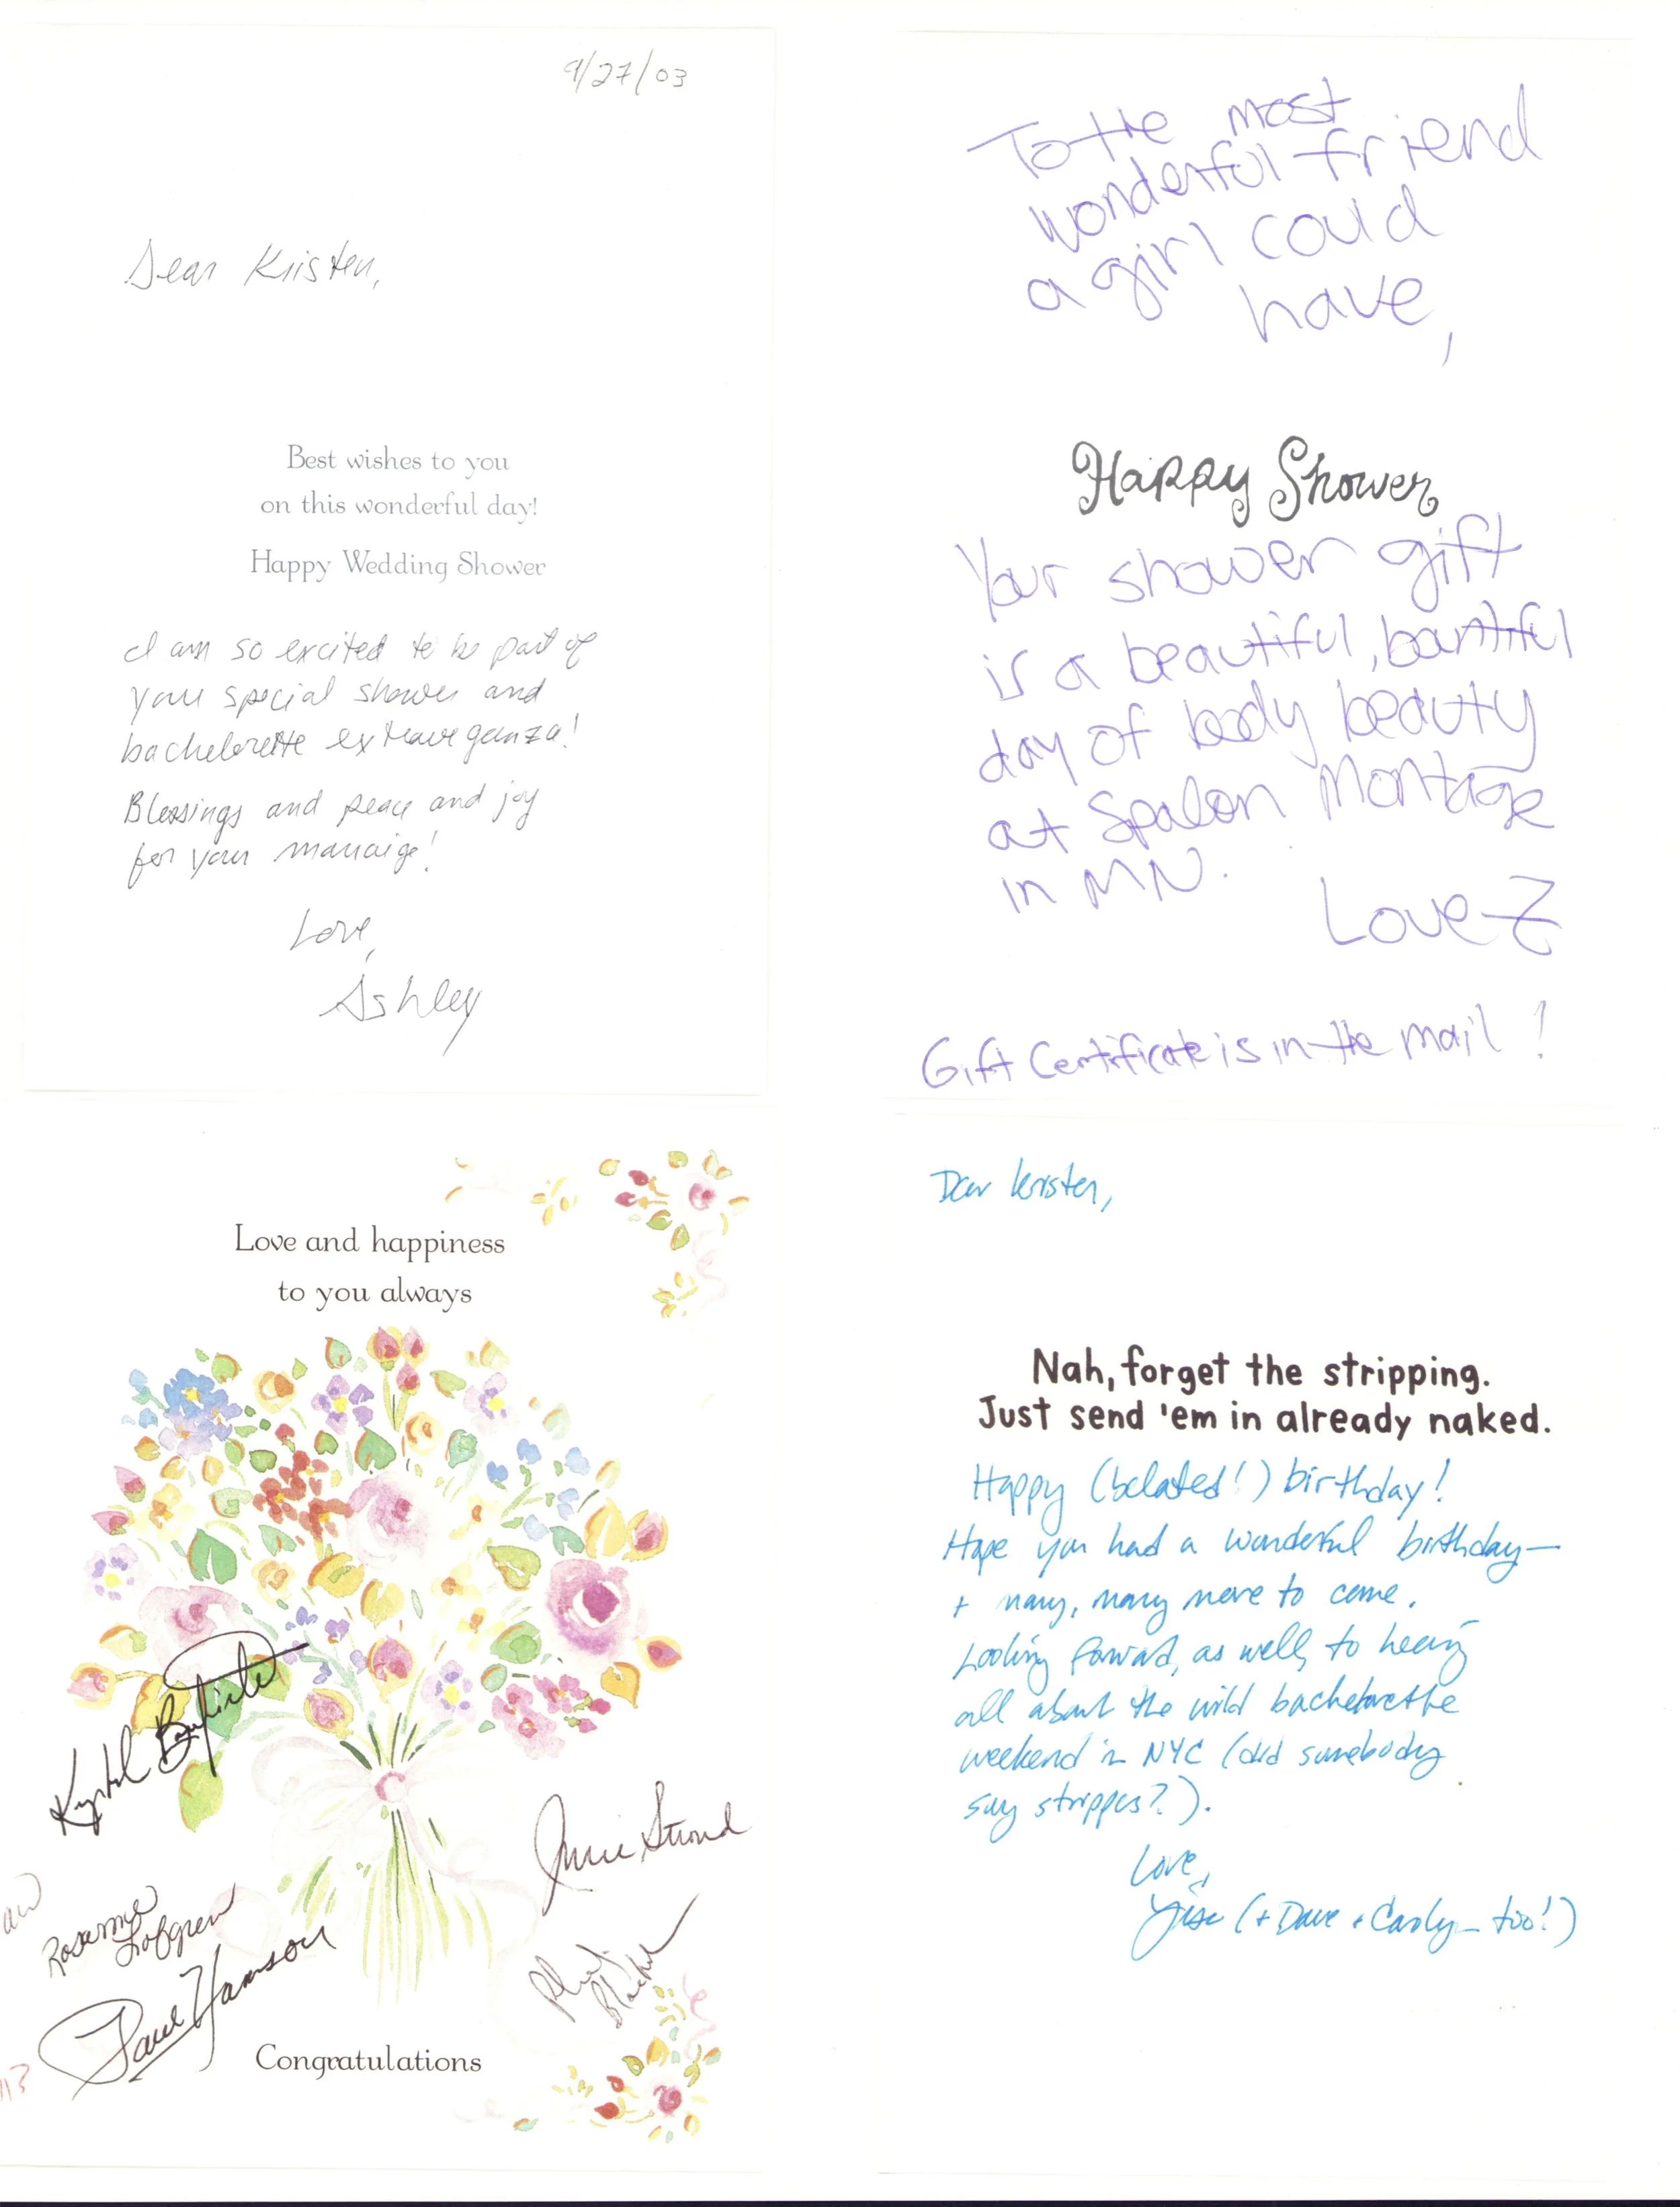 9/27/03
Dear Kristen,
Best wishes to you
on this wonderful day!
Happy Wedding Shower
I am so excited to be part of
your special shower and
bachelorette extravaganza!
Blessings and peace and joy
for your marraige!
Love,
Ashley
To the most
wonderful friend
a girl could
have,
Happy Shower
Your shower gift
is a beautiful, bountiful
day of body beauty
at Spalon Montage
in MN.
Love Z
Gift Certificate is in the mail!
Love and happiness
to you always
Krystal Baptiste
Annie Stroud
Rosanne
Lofgren
Paul Hanson
Congratulations
Dear Kristen,
Nah, forget the stripping.
Just send 'em in already naked.
Happy (belated!) birthday!
Hope you had a wonderful birthday—
+ many, many more to come.
Looking forward, as well, to hearing
all about the wild bachelorette
weekend in NYC (did somebody
say strippers?).
Love,
(+ Dave + Carly – too!)